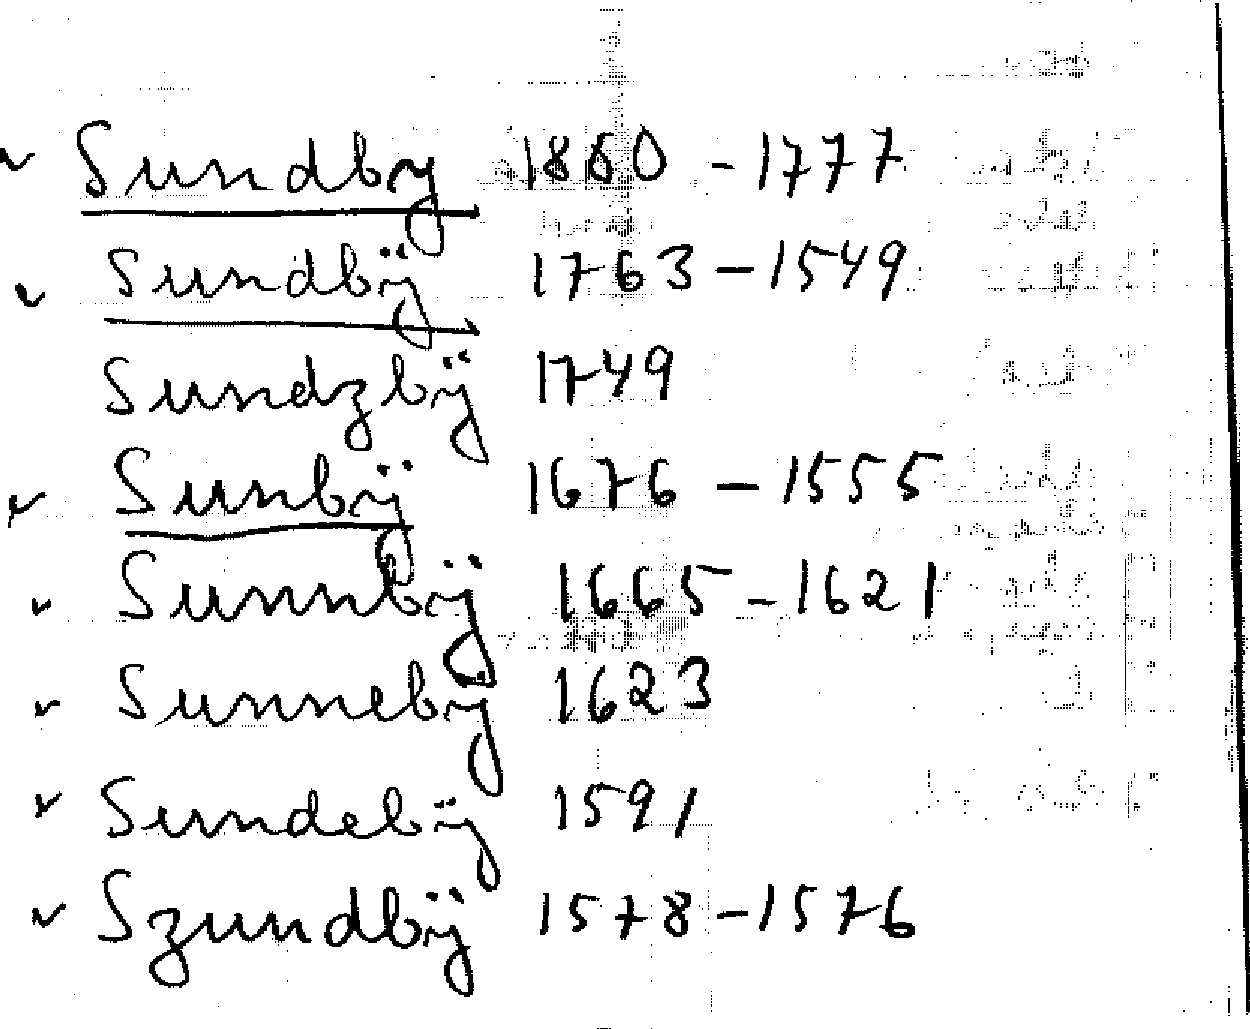 ✓ Sundby 1860 - 1777
✓ Sundbÿ 1763 - 1549
Sundzbÿ 1749
✓ Sunbÿ 1676 - 1555
✓ Sunnbÿ 1665 - 1621
✓ Sunnebÿ 1623
✓ Sundebÿ 1591
✓ Szundbÿ 1578 - 1576